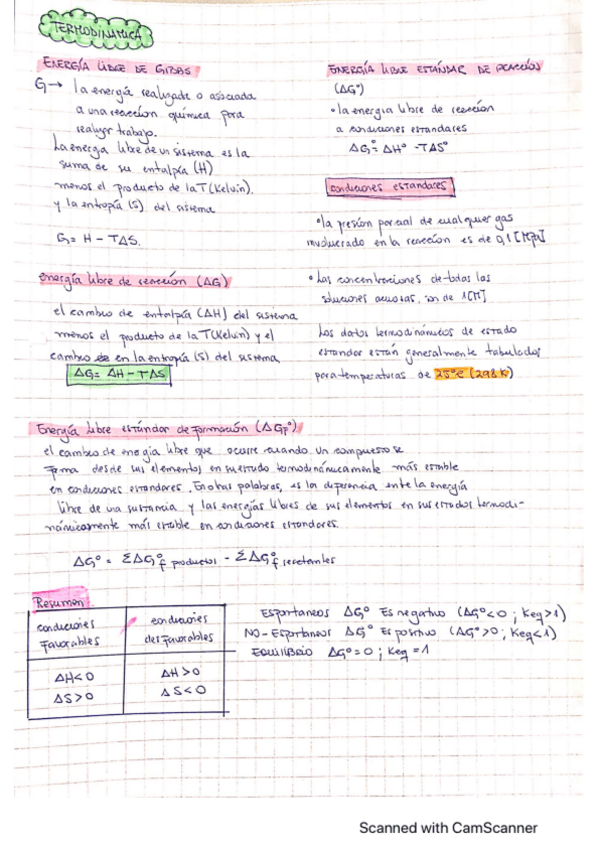 TERMODINAMICA
ENERGÍA LIBRE DE GIBBS
G → la energía realizada o asociada
a una reacción química para
realizar trabajo.
La energía libre de un sistema es la
suma de su entalpía (H)
menos el producto de la T (Kelvin).
y la entropía (S) del sistema
G = H - TΔS.
energía libre de reacción (ΔG)
el cambio de entalpía (ΔH) del sistema
menos el producto de la T (Kelvin) y el
cambio en la entropía (S) del sistema
ΔG = ΔH - TΔS
ENERGÍA LIBRE ESTÁNDAR DE REACCIÓN
(ΔG°)
• la energia libre de reacción
a condiciones estandares
ΔG° = ΔH° - TΔS°
condiciones estandares
• la presión parcial de cualquier gas
involucrado en la reacción es de 0,1 [MPa]
• Las concentraciones de todas las
soluciones acuosas. son de 1[M]
Los datos termodinámicos de estado
estandar están generalmente tabulados
para temperaturas de 25°C (298 K)
Energía libre estándar de formación (ΔGf°)
el cambio de energia libre que ocurre cuando un compuesto se
forma desde sus elementos en su estado termodinámicamente más estable
en condiciones estandares. En otras palabras, es la diferencia entre la energía
libre de una sustancia y las energías libres de sus elementos en sus estados termodi-
námicamente más estable en condiciones estandores.
ΔG° = ΣΔG°f productos - ΣΔG°f reactantes
Resumen
condiciones Favorables
condiciones desfavorables
ΔH<0
ΔS>0
ΔH>0
ΔS<0
Espontaneos ΔG° Es negativo (ΔG°<0 ; Keq>1)
NO-Espontaneos ΔG° Es positivo (ΔG°>0 ; Keq<1)
EQUILIBRIO ΔG°=0 ; Keq = 1
Scanned with CamScanner